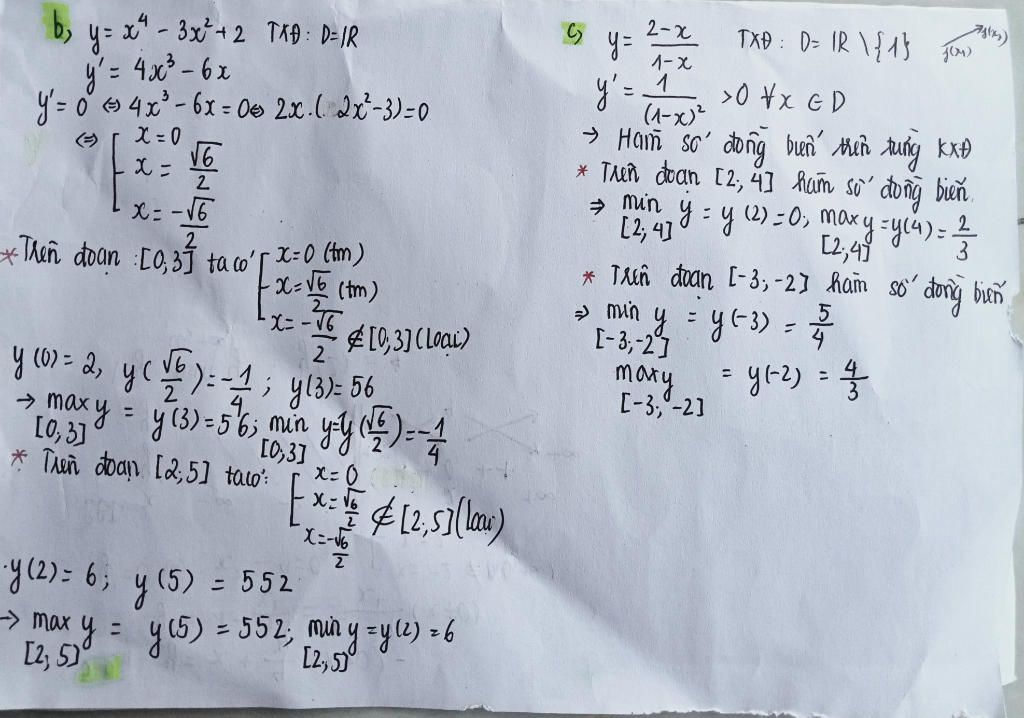 b, y = x⁴ - 3x² + 2 TXĐ: D = IR
y' = 4x³ - 6x
y' = 0 ⇔ 4x³ - 6x = 0 ⇔ 2x.(2x² - 3) = 0
⇔ [ x = 0
x = √6/2
x = -√6/2
* Trên đoạn :[0,3] ta có [ x = 0 (tm)
x = √6/2 (tm)
x = -√6/2 ∉ [0,3] (loại)
y(0) = 2, y(√6/2) = -1/4 ; y(3) = 56
→ max y = y(3) = 56; min y = y(√6/2) = -1/4
[0,3] [0,3]
* Trên đoạn [2;5] ta có: [ x = 0
x = √6/2
x = -√6/2 ∉ [2;5] (loại)
y(2) = 6; y(5) = 552
→ max y = y(5) = 552; min y = y(2) = 6
[2;5] [2;5]
c, y = (2-x)/(1-x) TXĐ: D = IR \ {1} f(x₁) f(x₂)
y' = 1/(1-x)² > 0 ∀x ∈ D
→ Hàm số đồng biến trên từng KXĐ
* Trên đoạn [2;4] hàm số đồng biến.
⇒ min y = y(2) = 0; max y = y(4) = 2/3
[2;4] [2;4]
* Trên đoạn [-3;-2] hàm số đồng biến
⇒ min y = y(-3) = 5/4
[-3;-2]
max y = y(-2) = 4/3
[-3;-2]